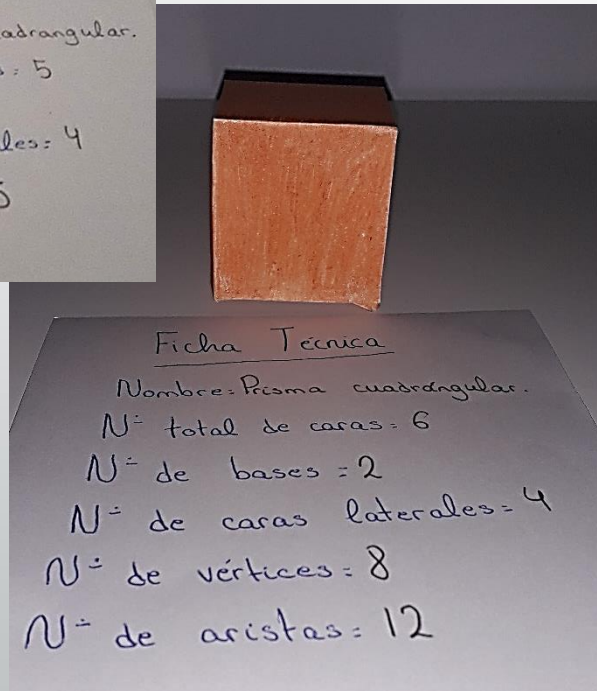 adrangular.
: 5
les: 4
5
Ficha Técnica
Nombre: Prisma cuadrángular.
Nº total de caras: 6
Nº de bases = 2
Nº de caras laterales = 4
Nº de vértices: 8
Nº de aristas: 12